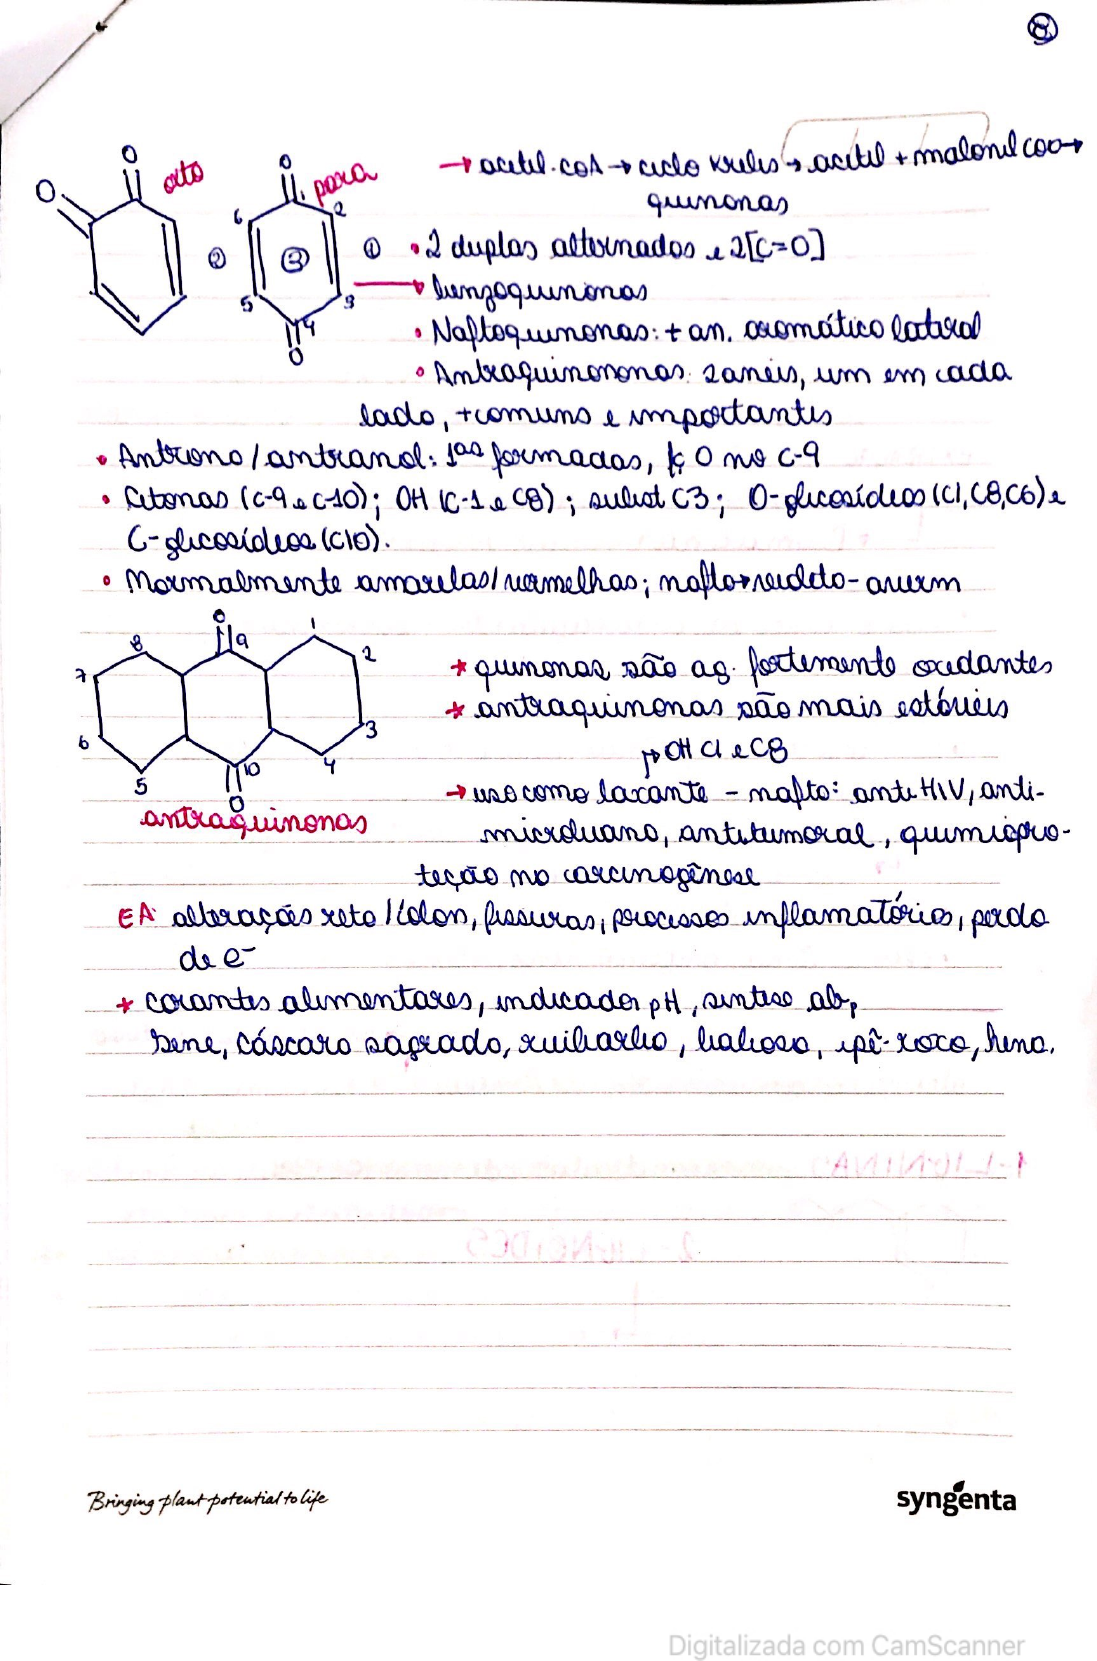 8
orto
para
→ acetil-coA → ciclo krebs → acetil + malonil coa →
quinonas
O
O
O
6
2
②
③
①
5
3
4
O
• 2 duplas alternadas e 2[C=O]
benzoquinonas
• Naftoquinonas: + an. aromático lateral
• Antraquinononas: 2 anéis, um em cada
lado, + comuns e importantes
• Antrona/antranol: 1as formadas, O no C-9
• Cetonas (C-9 e C-10); OH (C-1 e C8); subst C3; O-glicosídeos (C1, C8, C6) e
C-glicosídeos (C10).
• Normalmente amarelas/vermelhas; nafto → violeta-averm
O
9
1
8
2
7
6
3
5
10
4
O
antraquinonas
* quinonas são ag. fortemente oxidantes
* antraquinonas são mais estáveis
↳ OH C1 e C8
→ uso como laxante - nafto: anti HIV, anti-
microbiano, antitumoral, quimiopro-
teção na carcinogênese
EA: alterações reto/cólon, fissuras, processos inflamatórios, perda
de e-
* corantes alimentares, indicador pH, síntese
sene, cáscara sagrada, ruibarbo, babosa, ipê-roxo, hena.
Bringing plant potential to life
syngenta
Digitalizada com CamScanner